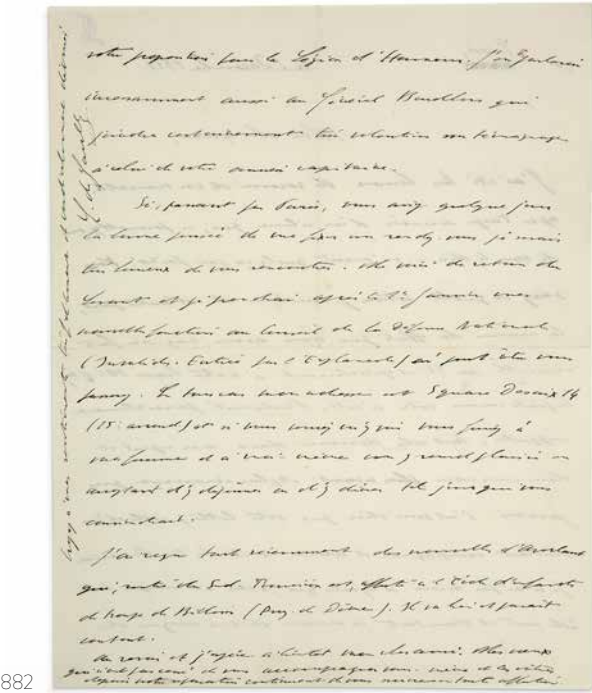 votre proposition pour la Légion d'Honneur. J'en parlerai
incessamment aussi au Général
joindra certainement très volontiers son témoignage
à celui de votre ancien capitaine.
Si, passant par Paris, vous avez quelque jour
la bonne pensée de me fixer un rendez vous je serais
très heureux de vous rencontrer. Me voici de retour du
Levant et je prendrai après le 1er Janvier mes
nouvelles fonctions au Conseil de la Défense Nationale
(Invalides. Entrée par l'Esplanade) où peut être vous
. Le mon adresse est Square Desaix 14
(15e arrond) et si vous vous à
ma femme et à moi même un grand plaisir en
acceptant d'y déjeuner ou d'y dîner tel jour qui vous
conviendrait.
J'ai reçu tout récemment des nouvelles d'
qui, rentré du Sud Tunisien est affecté à l'École d'enfants
de troupe de Billom (Puy de Dôme). Il va bien et paraît
content.
Au revoir et j'espère à bientôt mon cher ami. Mes vœux
qui n'ont pas cessé de vous accompagner vous même et les vôtres
depuis votre séparation continuent de vous
sentiments
C. de Gaulle
882